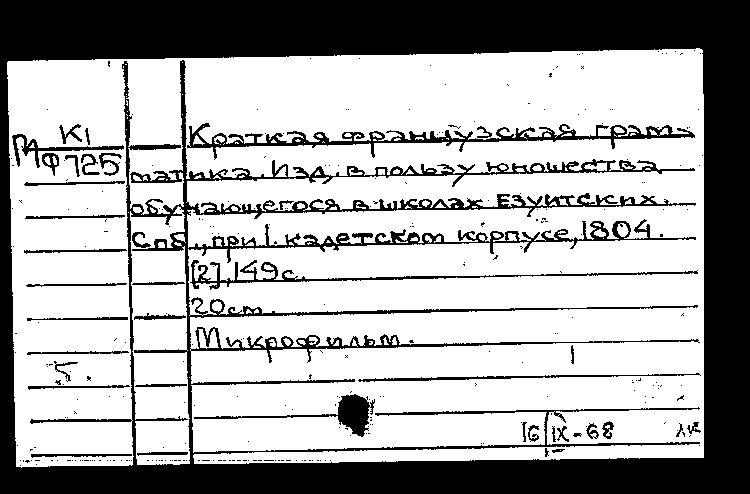 К1
М Ф725
Краткая французская грам-
матика. Изд. в пользу юношества
обучающегося в школах Езуитских.
Спб., при 1. кадетском корпусе, 1804.
[2], 149 с.
20 cm.
Микрофильм.
5.
1
16/IX-68